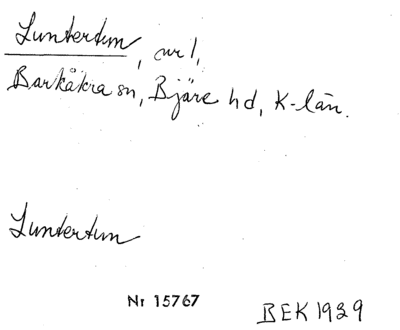 Luntertun, avr l,
Barkåkra sn, Bjäre hd, K-län.
Luntertun
Nr 15767
BEK 1939